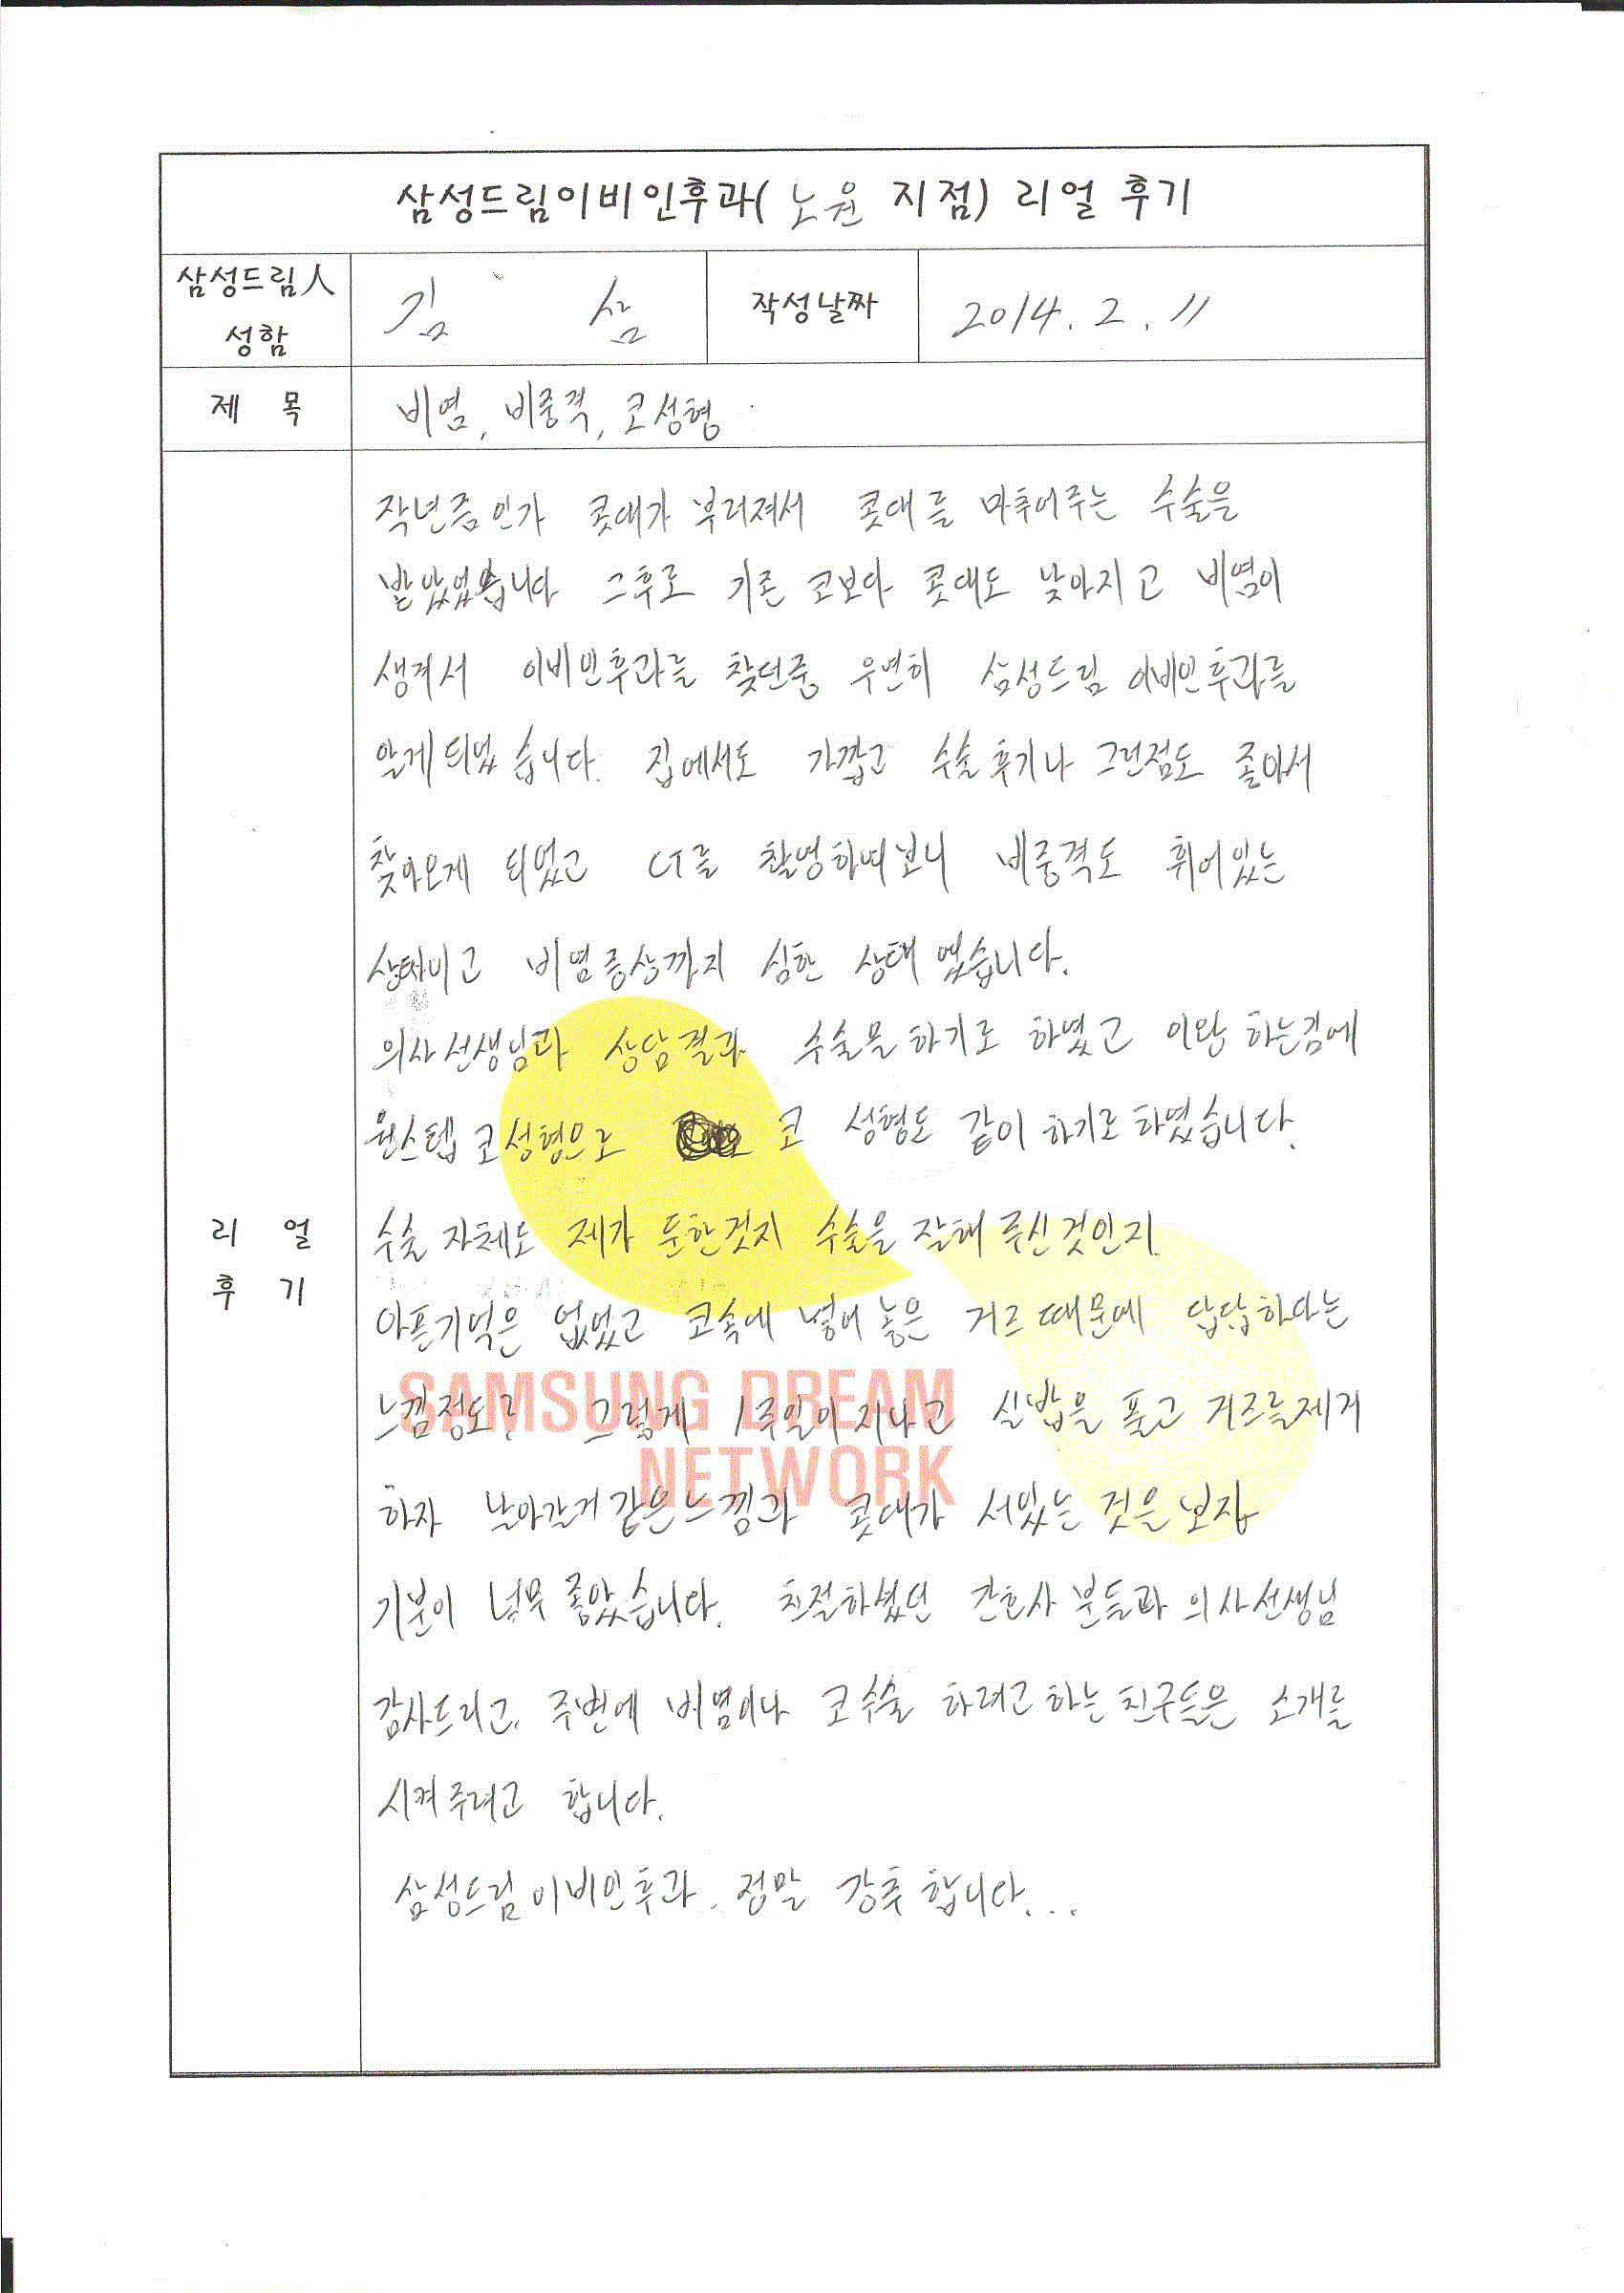 삼성드림이비인후과( 노원 지점) 리얼 후기
삼성드림人
성함
김 삼
작성날짜
2014. 2. 11
제 목
비염, 비중격, 코성형
작년쯤인가 콧대가 부러져서 콧대를 마추어주는 수술을
받았었습니다 그후로 기존 코보다 콧대도 낮아지고 비염이
생겨서 이비인후과를 찾던중 우연히 삼성드림 이비인후과를
알게되었습니다. 집에서도 가깝고 수술후기나 그런점도 좋아서
찾아오게 되었고 CT를 촬영하여보니 비중격도 휘어있는
상태이고 비염증상까지 심한 상태였습니다.
의사선생님과 상담결과 수술을하기로 하였고 이왕 하는김에
원스텝 코성형으로 코 성형도 같이 하기로하였습니다.
리 얼
후 기
수술 자체도 제가 둔한것지 수술을 잘해 주신것인지
아픈기억은 없었고 코속에 넣어 놓은 거즈때문에 답답하다는
느낌정도? 그렇게 1주일이지나고 실밥을 풀고 거즈를제거
하자 날아갈거같은느낌과 콧대가 서있는 것을보자
기분이 너무 좋았습니다. 친절하셨던 간호사 분들과 의사선생님
감사드리고, 주변에 비염이나 코수술 하려고하는친구들은 소개를
시켜주려고 합니다.
삼성드림이비인후과. 정말 강추합니다...
SAMSUNG DREAM
NETWORK